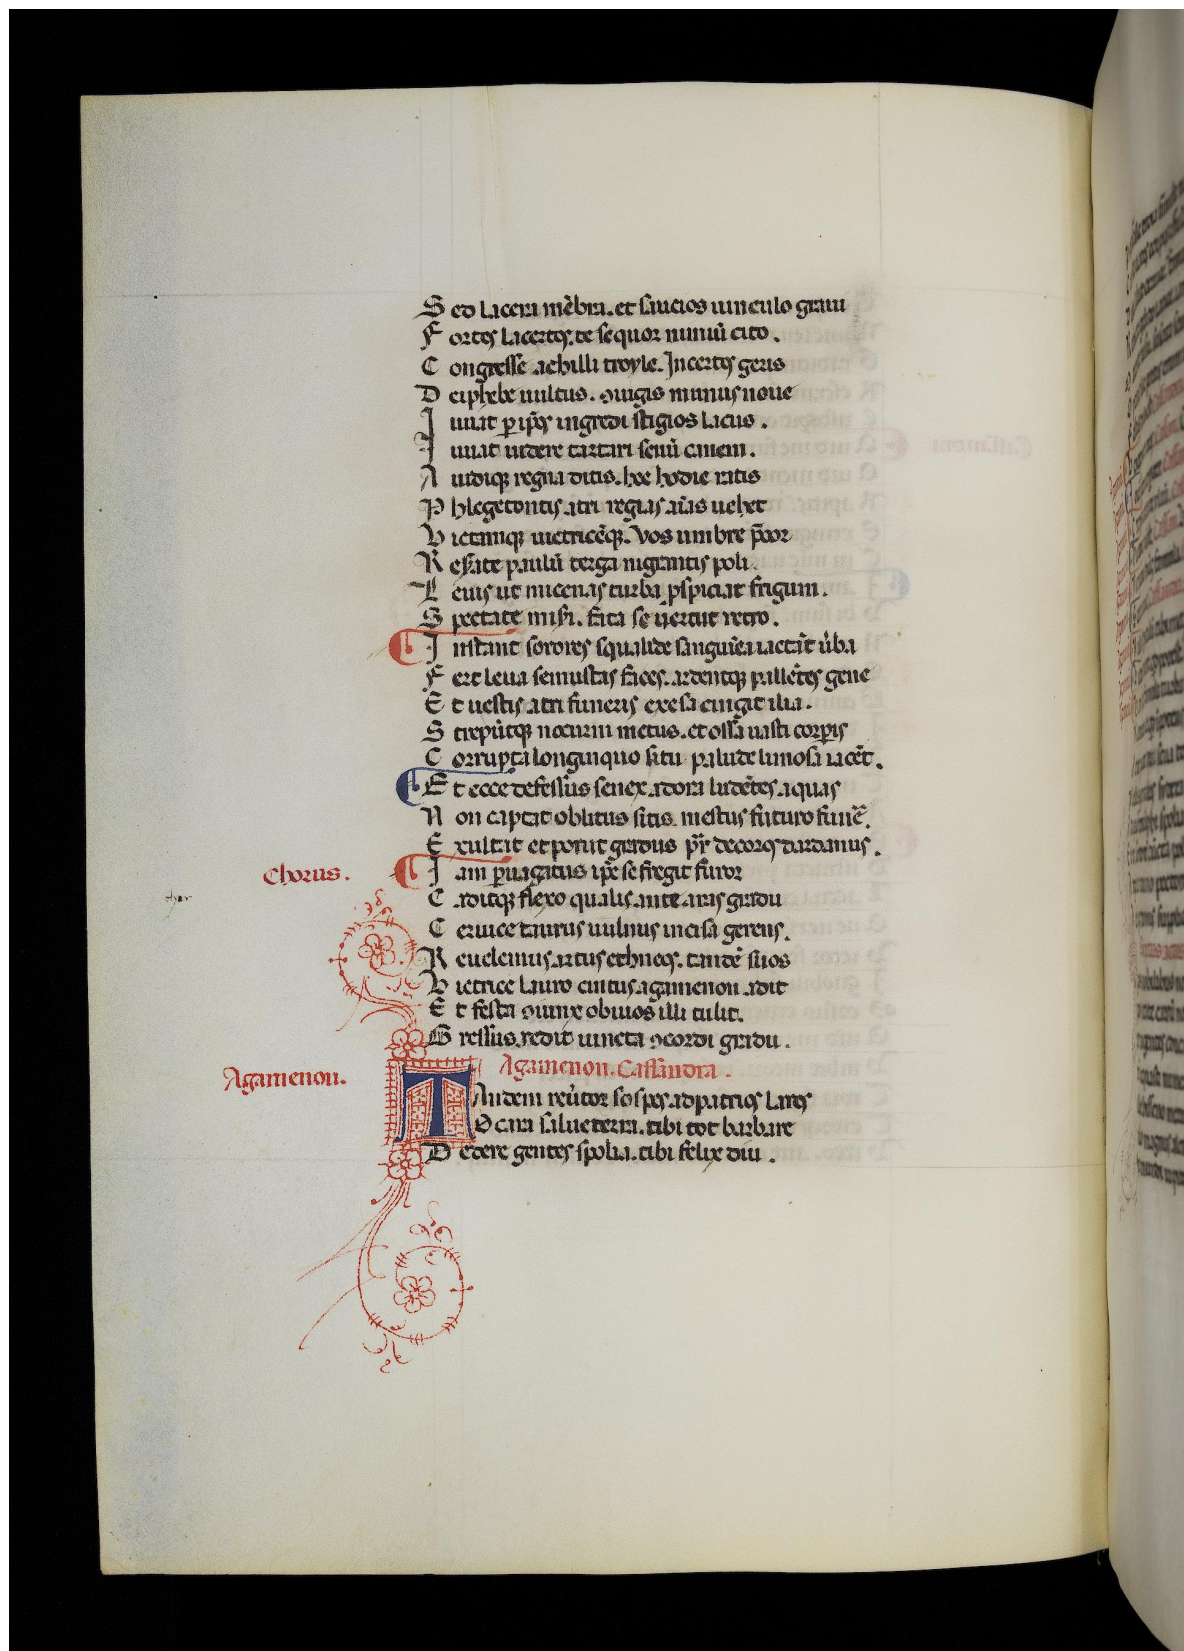 S ed lacera mẽbra. et saucios uinculo graui
F ortes lacertos. te sequor nimiũ cito.
C ongresse achilli troyle. Incertos geris
D eiphebe uultus. ꝯiugis munus noue
I uuat ꝑ ip̃os ingredi stigios lacus.
I uuat uidere tartari seuũ canem.
A uidiqꝫ regna ditis. hec hodie ratis
P hlegetontis atri regias aĩas uehet
V ictamqꝫ uictricẽqꝫ. Vos umbre p̃cor
R estate paulũ terga nigrantis poli.
L euis ut micenas turba ꝓspiciat frigum.
S pectate misẽri. fata se uertunt retro.
I nstant sorores squalide sanguĩea iactãt ũba
F ert leua semustas faces. ardentqꝫ pallẽtes gene
E t uestis atri funeris exesa cingit ilia.
S trepũtqꝫ nocturni metus. et ossa uasti corꝑis
C orrupta longinquo situ palude limosa iacẽt.
E t ecce defessus senex ad ora ludẽtes aquas
N on captat oblitus sitis. mestus futuro funẽ.
E xultat et ponit gradus pr̃ decoros dardanus.
Chorus.
I am ꝑuagatus ip̃e se fregit furor
C aditqꝫ flexo qualis ante aras gradu
C eruice taurus uulnus incisa gerens.
R euelemus artus ethneos. tandẽ suos
V ictrice lauro cintus agamenon adit
E t festa ꝯiunx obuios illi tulit.
G ressus. redit iuncta ꝯcordi gradu.
Agamenon. Cassandra.
Agamenon.
TAndem reũtor sospes ad patrios lares
O cara salue terra. tibi tot barbare
D edere gentes spolia. tibi felix diu.